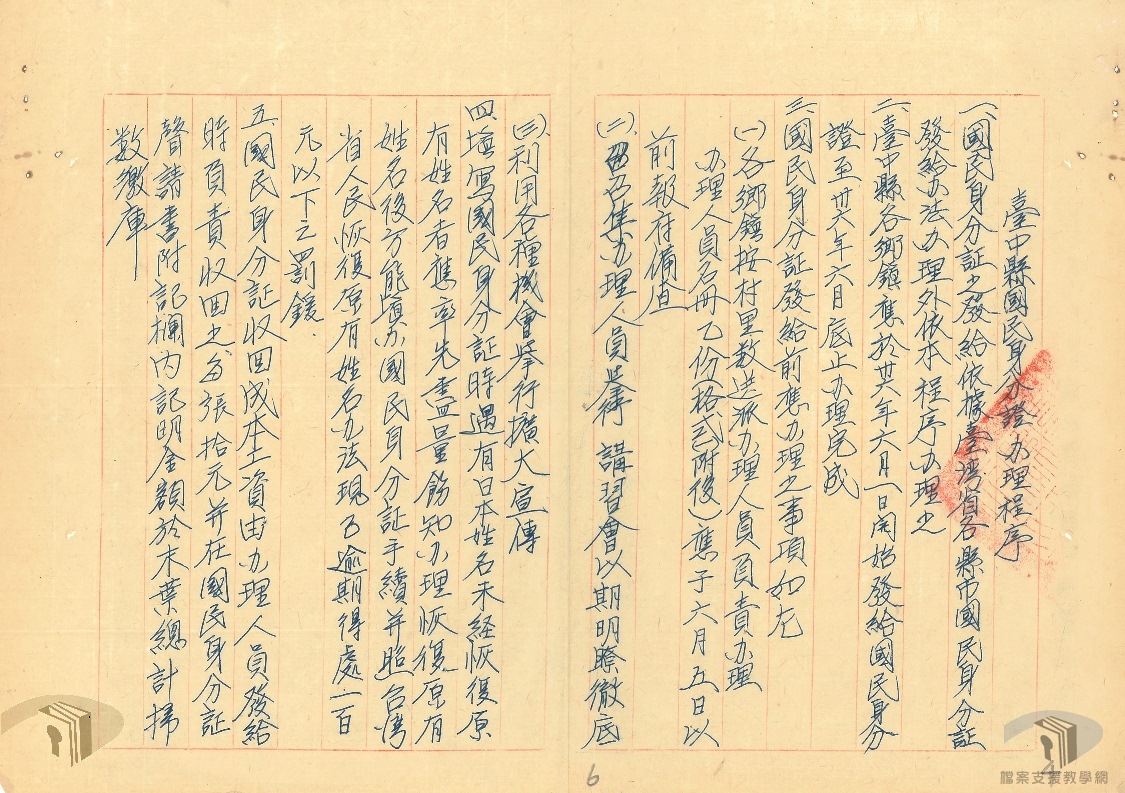 臺中縣國民身分證办理程序
一、國民身分証之發給依據臺湾省各縣市國民身分証
發給办法办理外依本程序办理之
二、臺中縣各鄉鎮應於卅六年六月一日開始發給國民身分
證至卅六年六月底止办理完成
三、國民身分証發給前應办理之事項如左
(一)各鄉鎮按村里数送派办理人員負責办理
办理人員名冊乙份格式附後)應于六月五日以
前報府備查
(二)召集办理人員举行講習會以期明瞭徹底
(三)利用各種機會举行擴大宣傳
四、填寫國民身分証時遇有日本姓名未経恢復原
有姓名者應率先盡量飭知办理恢復原有
姓名後方能填办國民身分証手續并照台湾
省人民恢復原有姓名办法現已逾期得處一百
元以下之罰鍰
五、國民身分証收回成本工資由办理人員發給
時負責收回之每張拾元并在國民身分証
聲請書附記欄内記明金額於末葉總計掃
数繳庫
6
檔案支援教學網